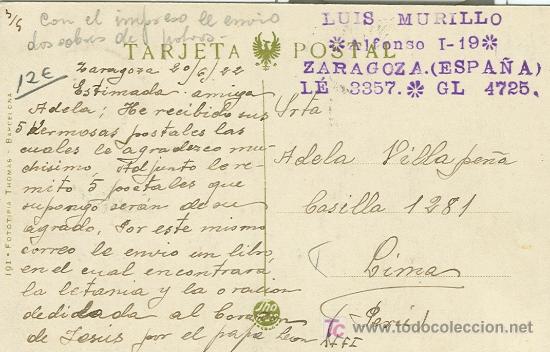 5/5
Con el impreso le envio
dos sobres de polvos-
TARJETA POSTAL
12€
LUIS MURILLO
Alfonso I-19
ZARAGOZA.(ESPAÑA)
LÉ 3357. GL 4725.
Zaragoza 20/5/22
Estimada amiga
Adela; He recibido sus
5 hermosas postales las
cuales le agradezco mu-
chisimo, Adjunto le re-
mito 5 postales que
supongo serán de su
agrado. Por este mismo
correo le envio un libro,
en el cual encontrará
la letania y la oracion
dedidada al Corazon
de Jesús por el papa Leon XIII
Srta
Adela Villapeña
Casilla 1281
Lima
(Perú)
191 - FOTOTIPIA THOMAS - BARCELONA
TC todocoleccion.net
www.todocoleccion.net